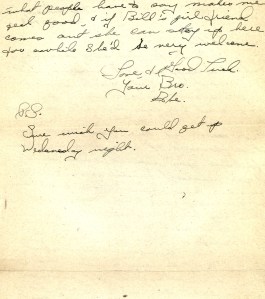 what people have to say makes me
feel good. & if Bill's girl friend
comes out she can stay up here
for awhile. She'd be very welcome.
Love & Good Luck.
Your Bro.
Babe.
P.S.
Sure wish you could get up
Wednesday night.